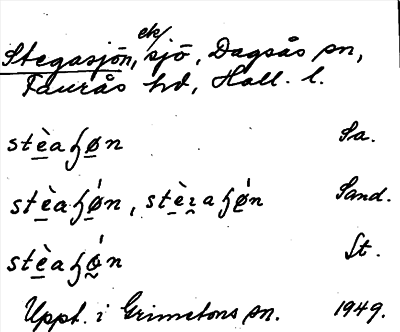 Stegasjön, el/ sjö, Dagsås sn,
Faurås hd, Hall. l.
stèaʃøn Sa.
stèaʃǿn, stèɿaʃǿn Sand.
stèaʃǿn St.
Uppt. i Grimetons sn. 1949.